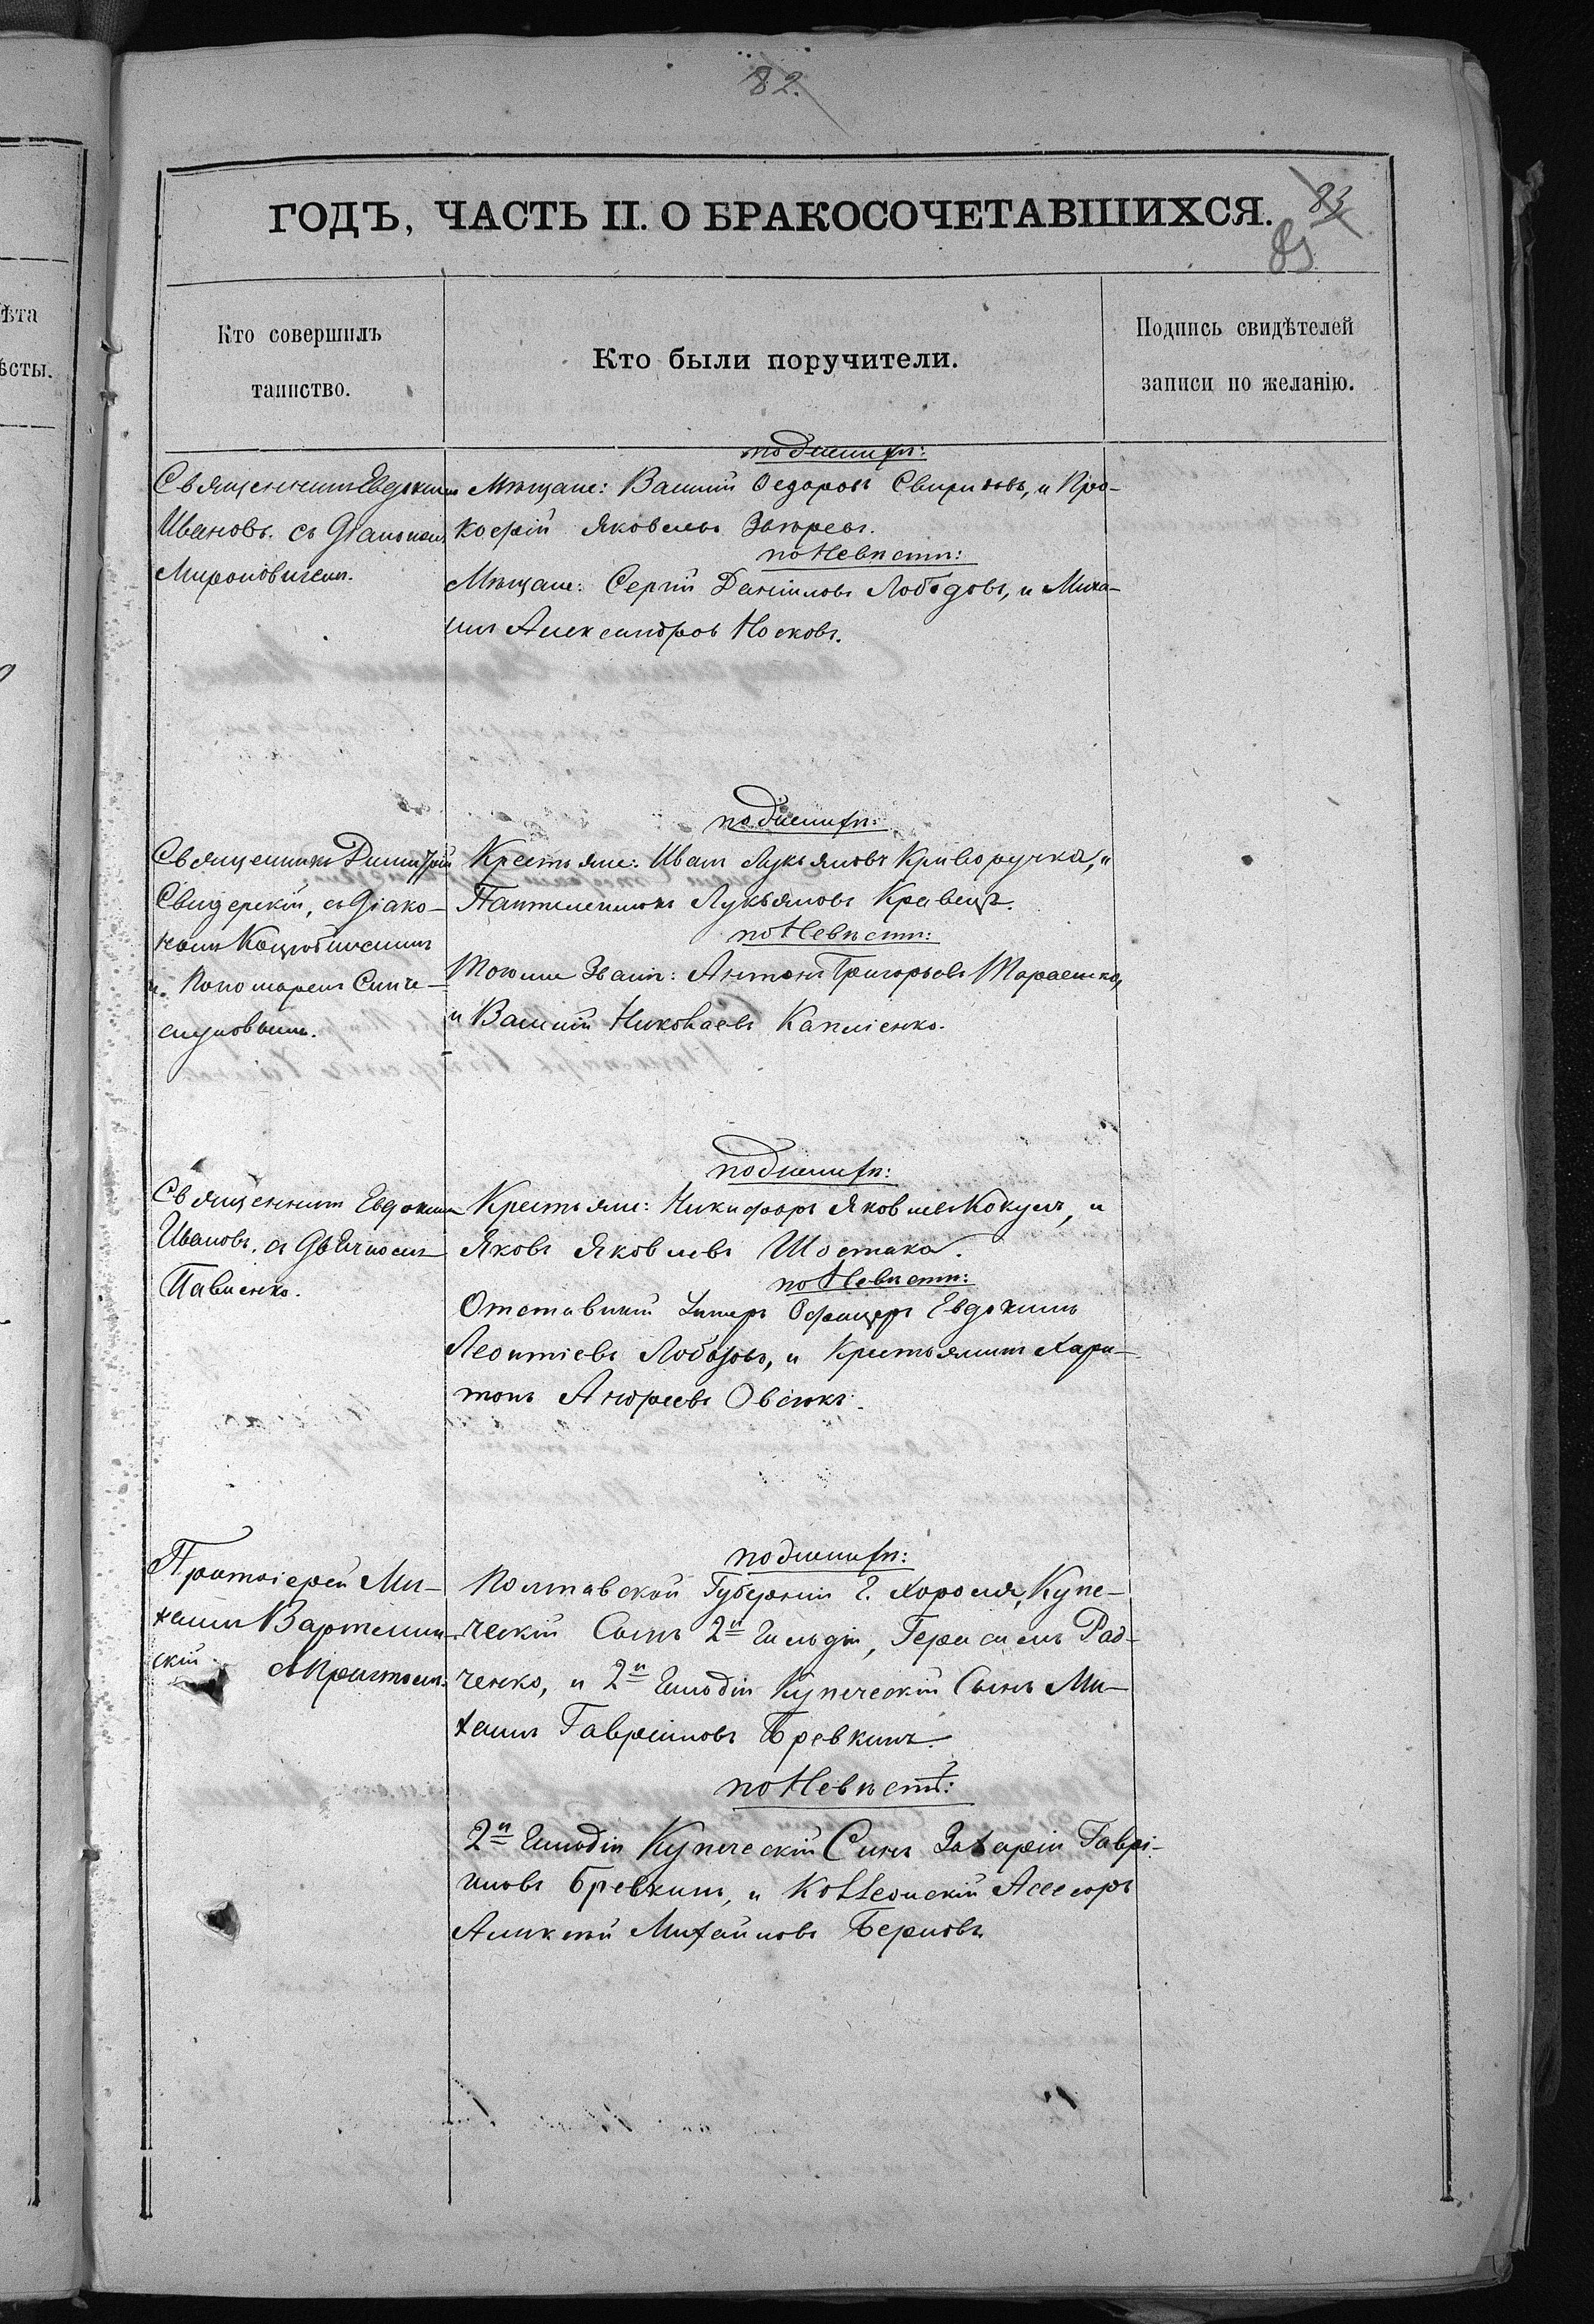 82.
ГОДЪ, ЧАСТЬ II. О БРАКОСОЧЕТАВШИХСЯ.
83
ѣта
ѣсты.
Кто совершилъ
таинство.
Кто были поручители.
Подпись свидѣтелей
записи по желанію.
Священникъ Евдокимъ
Ивановъ. съ Діакономъ
Мироновичемъ.
по Женихѣ:
Мѣщане: Василій Ѳедоровъ Свиридовъ, и Про-
кофій Яковлевъ Звѣревъ.
по Невѣстѣ:
Мѣщане: Сергій Даніиловъ Лободовъ, и Миха-
илъ Александровъ Носковъ.
Священникъ Димитрій
Свидерскій, съ Діако-
номъ
и Пономаремъ
по Женихѣ:
Крестьяне: Иванъ Лукьяновъ Криворучка, и
Пантелеимонъ Лукьяновъ Кравецъ.
по Невѣстѣ:
Тогоже Званія: Антонъ Григорьевъ Тарасенко,
и Василій Николаевъ
Священникъ Евдокимъ
Ивановъ, съ Дьячкомъ
Павленко.
по Женихѣ:
Крестьяне: Никифоръ Яковлевъ Кокулъ, и
Яковъ Яковлевъ Шостака.
по Невѣстѣ:
Отставной Унтеръ Офицеръ Евдокимъ
Леонтіевъ Лобазовъ, и Крестьянинъ Хари-
тонъ Андреевъ Овсюкъ.
Протоіерей Ми-
хаилъ Вартмин-
скій съ Причтомъ.
по Женихѣ:
Полтавской Губерніи Г. Хорола, Купе-
ческій Сынъ 2й Гильдіи, Герасимъ Рад-
ченко, и 2й Гильдіи Купеческій Сынъ Ми-
хаилъ Гавріиловъ Бревкинъ.
по Невѣстѣ:
2й Гильдіи Купеческій Сынъ Захарій Гаврі-
иловъ Бревкинъ, и Коллежскій Ассесоръ
Алексѣй Михайловъ Берновъ.